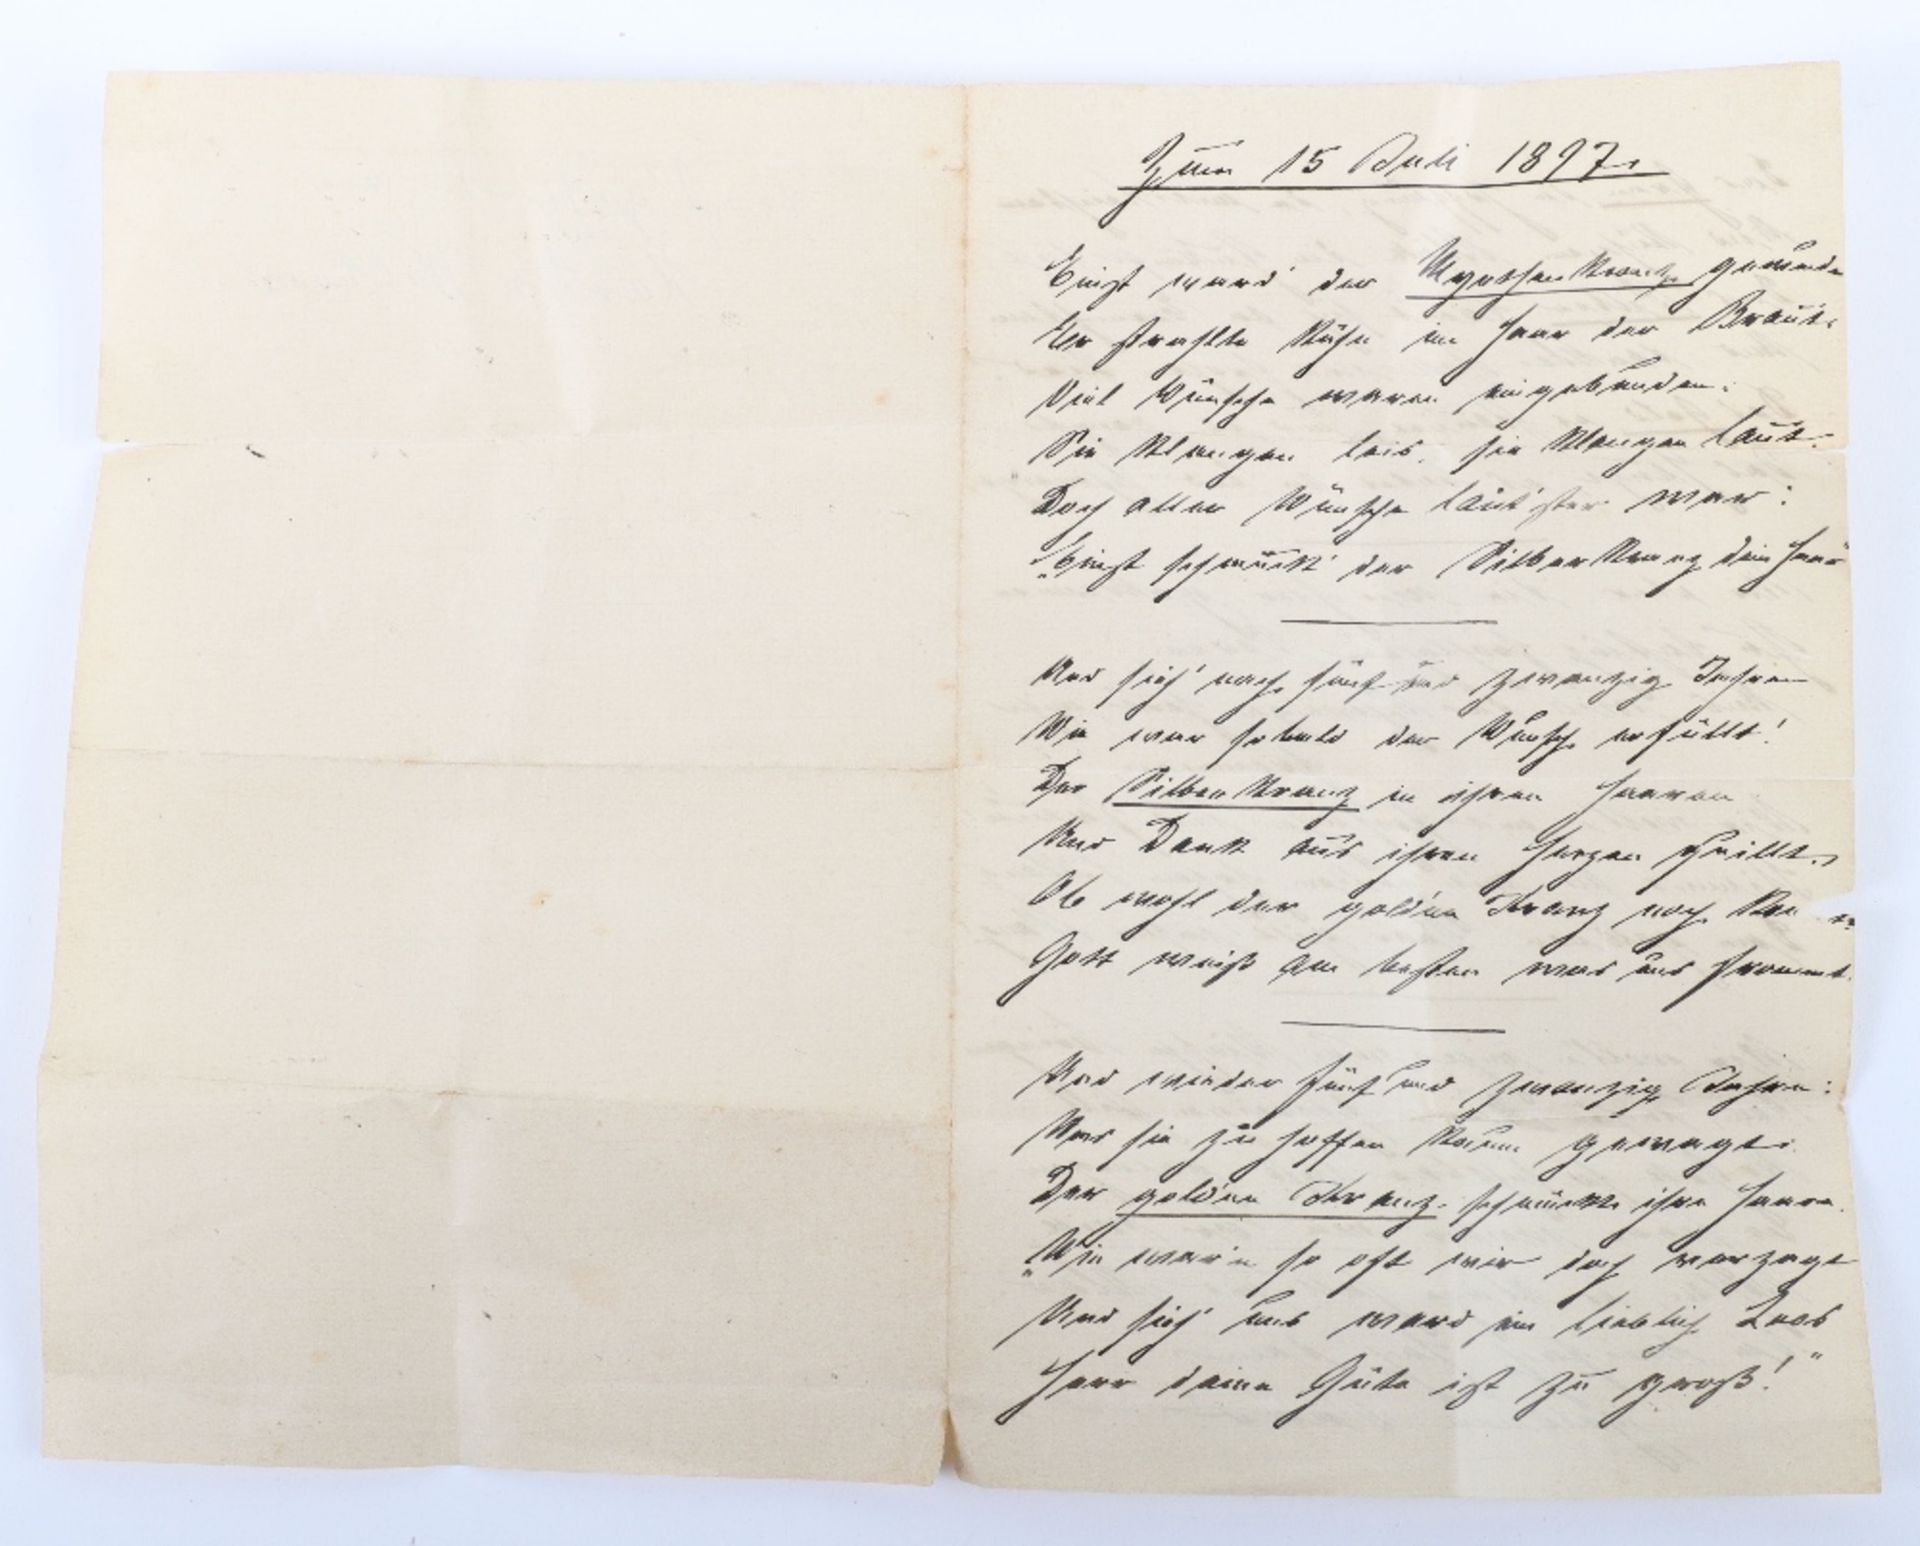 Zum 15 Juli 1897.
Einst ward' der Myrthenkranz gewunden
Er strahlte kühn im Haar der Braut.
Viel Wünsche waren eingebunden.
Sie klangen leis, sie klangen laut.
Doch aller Wünsche laut'ster war:
„Einst schmück' der Silberkranz dein Haar"
Und sieh' nach fünf und zwanzig Jahren
Wie war sobald der Wunsch erfüllt!
Der Silberkranz in ihren Haaren
Und Dank aus ihren Herzen quillt.
Ob wohl der gold'ne Kranz noch
Gott weiß am besten was uns frommt.
Und wieder fünf und zwanzig Jahre:
Was sie zu hoffen kaum gewagt.
Der gold'ne Kranz schmückt ihre Haare.
„Wie war'n so oft wir doch verzagt
Und sieh' uns ward ein lieblich Loos
Herr deine Güte ist zu groß!"